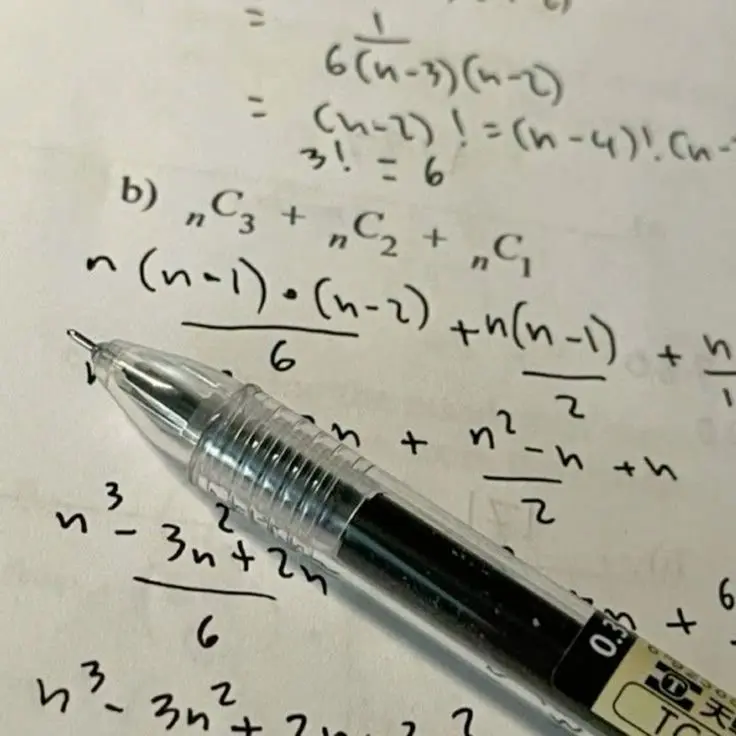 =
1
6(n-3)(n-2)
= (n-2)! = (n-4)!.(n-
3! = 6
b) nC3 + nC2 + nC1
n(n-1)·(n-2) + n(n-1) + n
6 2 1
n + n² - n + n
2
n³ - 3n² + 2n
6
+ 6
n³ - 3n² + 2n
0.35
天
T
TG